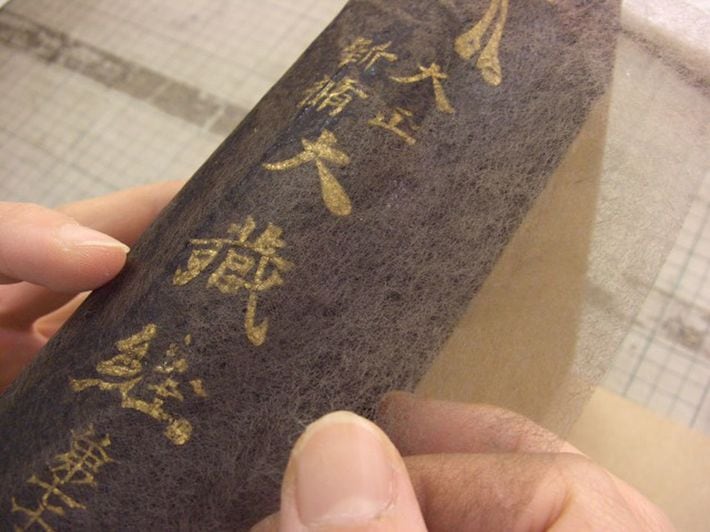 大正
新脩
大藏經
第十